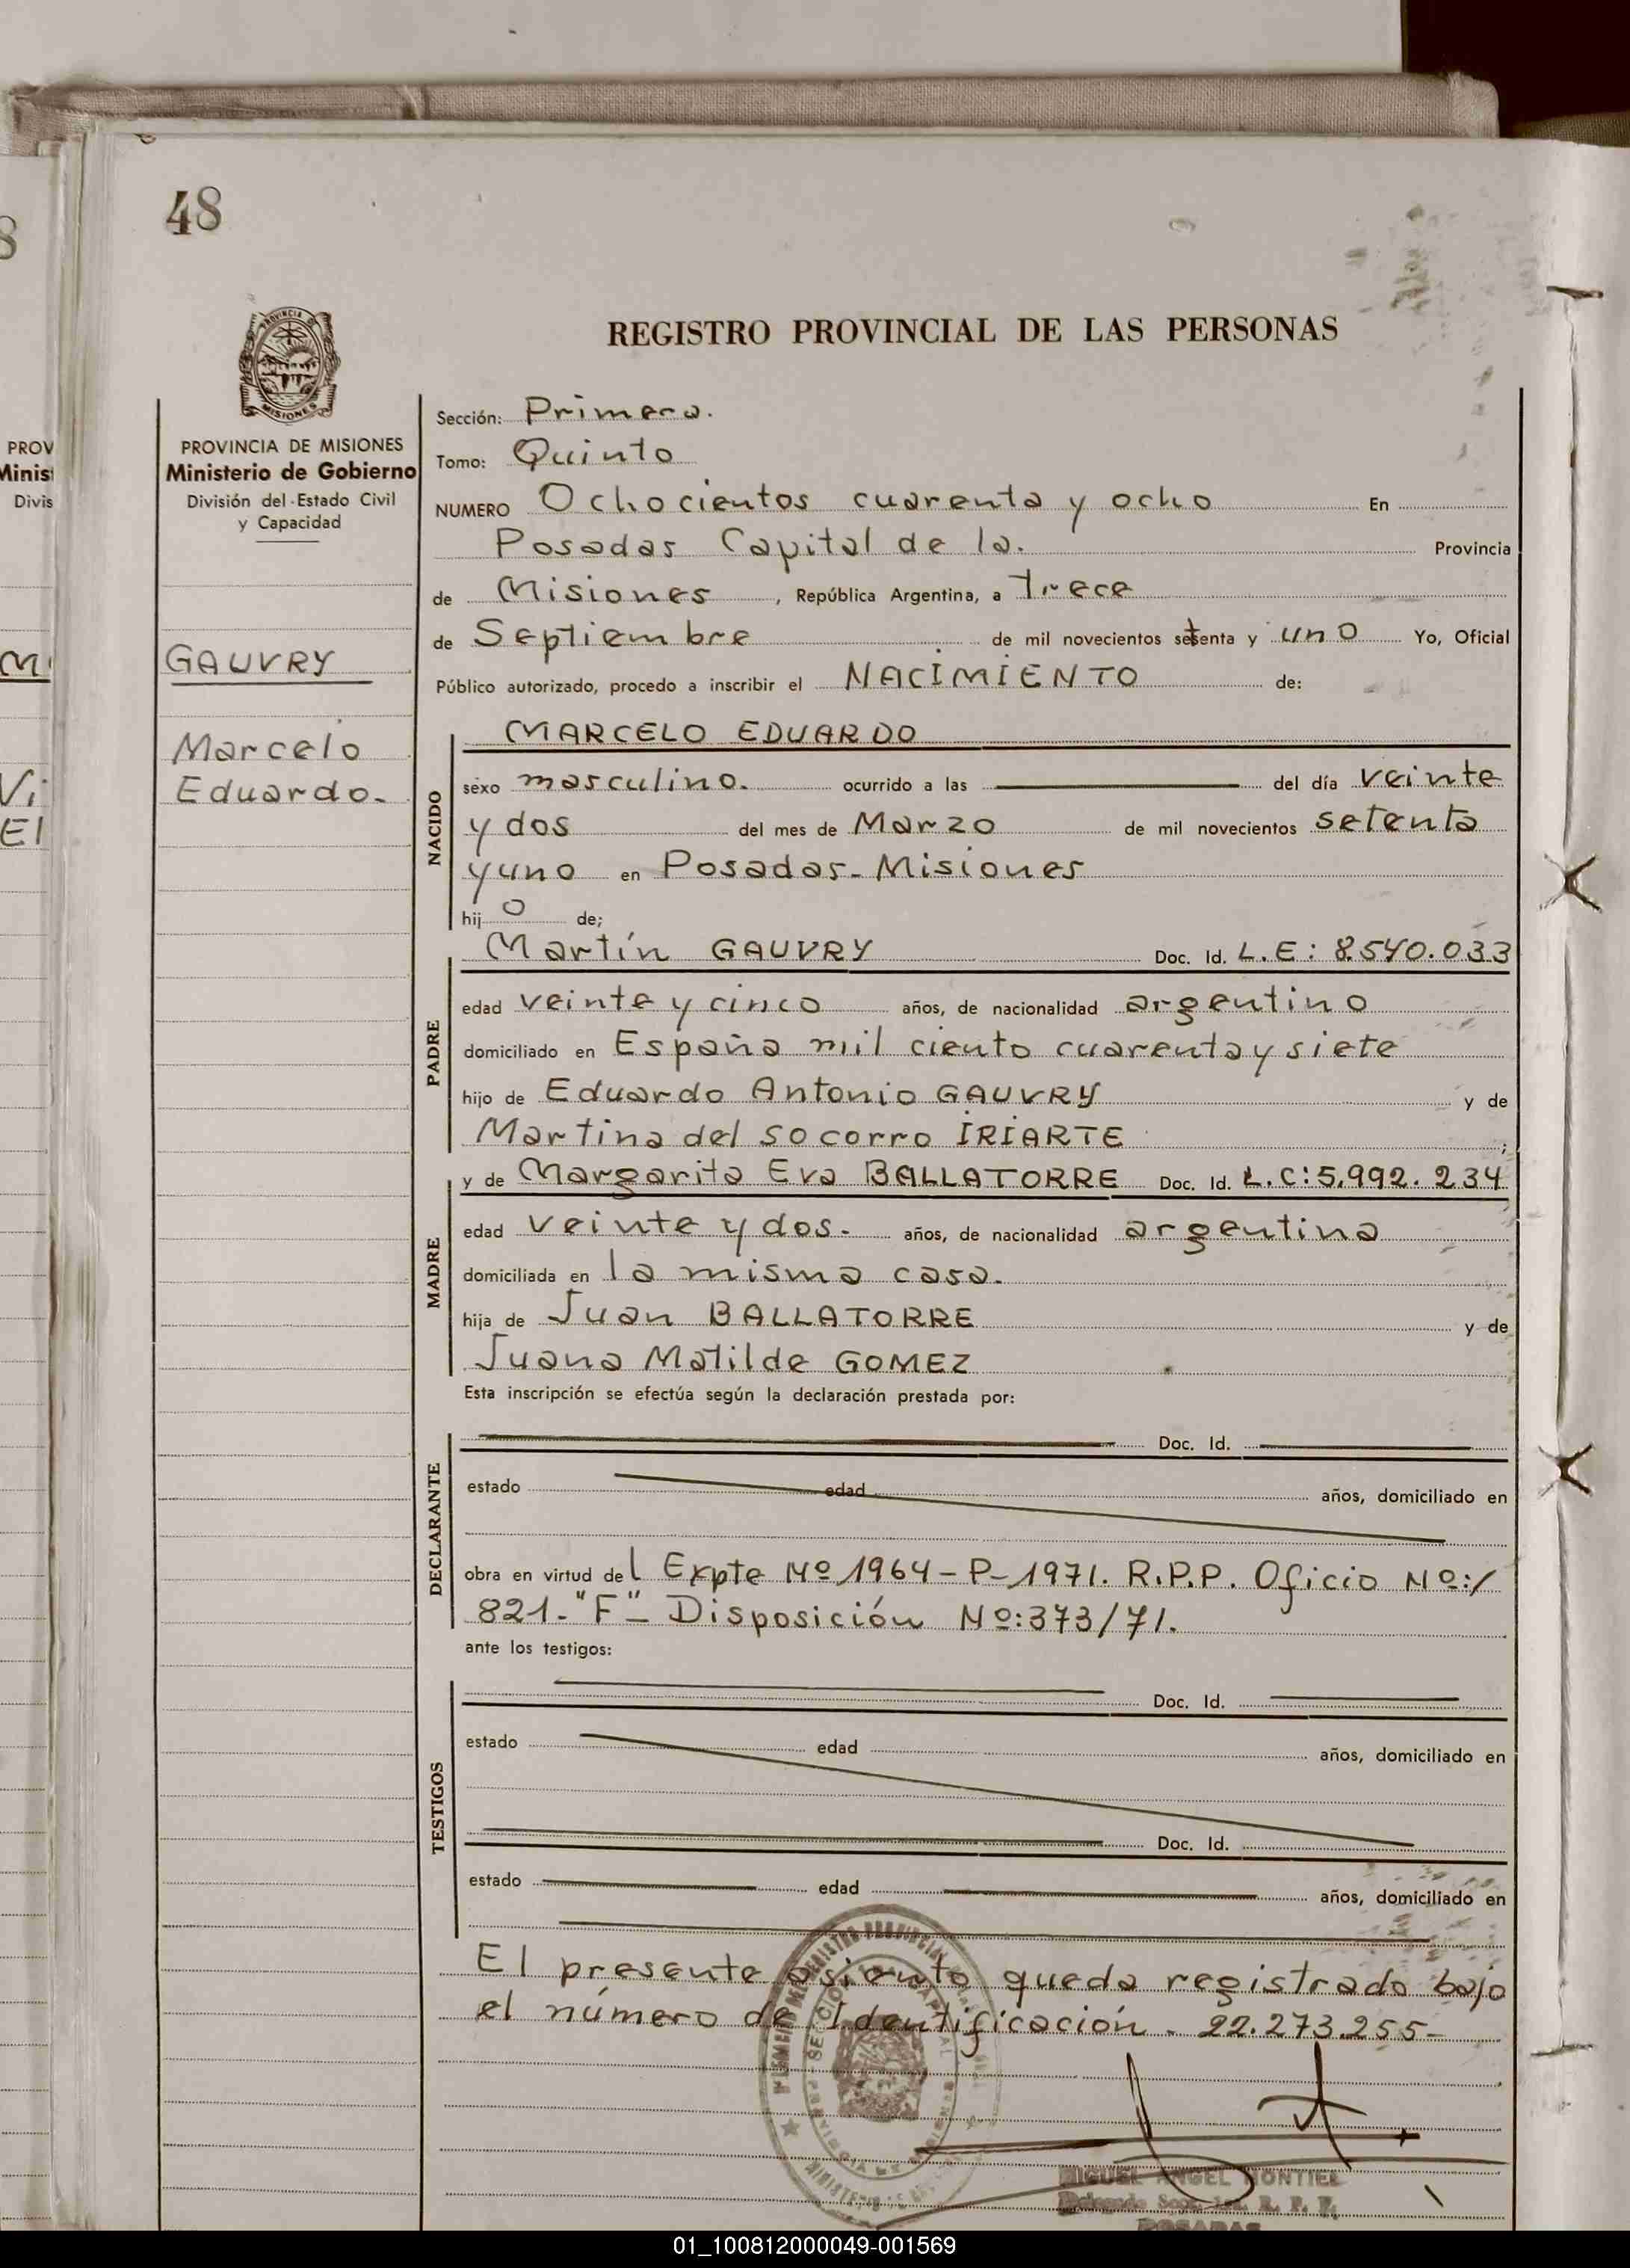 48
REGISTRO PROVINCIAL DE LAS PERSONAS
PROVINCIA DE MISIONES
Ministerio de Gobierno
División del Estado Civil
y Capacidad
GAUVRY
Marcelo
Eduardo.
Sección: Primera.
Tomo: Quinto
NUMERO Ochocientos cuarenta y ocho En
Posadas Capital de la. Provincia
de Misiones, República Argentina, a trece
de Septiembre de mil novecientos setenta y uno Yo, Oficial
Público autorizado, procedo a inscribir el NACIMIENTO de:
NACIDO
MARCELO EDUARDO
sexo masculino. ocurrido a las del día veinte
y dos del mes de Marzo de mil novecientos setenta
y uno en Posadas - Misiones
hijo de;
PADRE
Martín GAUVRY Doc. Id. L.E: 8.540.033
edad veinte y cinco años, de nacionalidad argentino
domiciliado en España mil ciento cuarenta y siete
hijo de Eduardo Antonio GAUVRY y de
Martina del Socorro IRIARTE ;
MADRE
y de Margarita Eva BALLATORRE Doc. Id. L.C: 5.992.234
edad veinte y dos. años, de nacionalidad argentina
domiciliada en la misma casa.
hija de Juan BALLATORRE y de
Juana Matilde GOMEZ
Esta inscripción se efectúa según la declaración prestada por:
DECLARANTE
Doc. Id.
estado edad años, domiciliado en
obra en virtud del Expte Nº 1964-P-1971. R.P.P. Oficio Nº:/
821-"F"- Disposición Nº:373/71.
ante los testigos:
TESTIGOS
Doc. Id.
estado edad años, domiciliado en
Doc. Id.
estado edad años, domiciliado en
El presente asiento queda registrado bajo
el número de Identificación - 22.273.255-
MIGUEL ANGEL MONTIEL
POSADAS
01_100812000049-001569